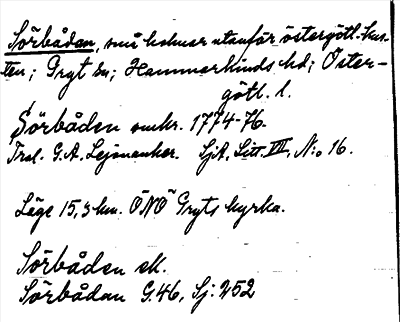 Sörbådan, små holmar utanför östergötl. kus-
ten; Gryt sn; Hammarkinds hd; Öster-
götl. l.
Sörbåden omkr. 1774-76.
Trol. G.A. Lejonanker. SjA, Litt. III, N:o 16.
Läge 15,3 km. ÖNÖ Gryts kyrka.
Sörbåden ek.
Sörbådan G.46, Sj: 252